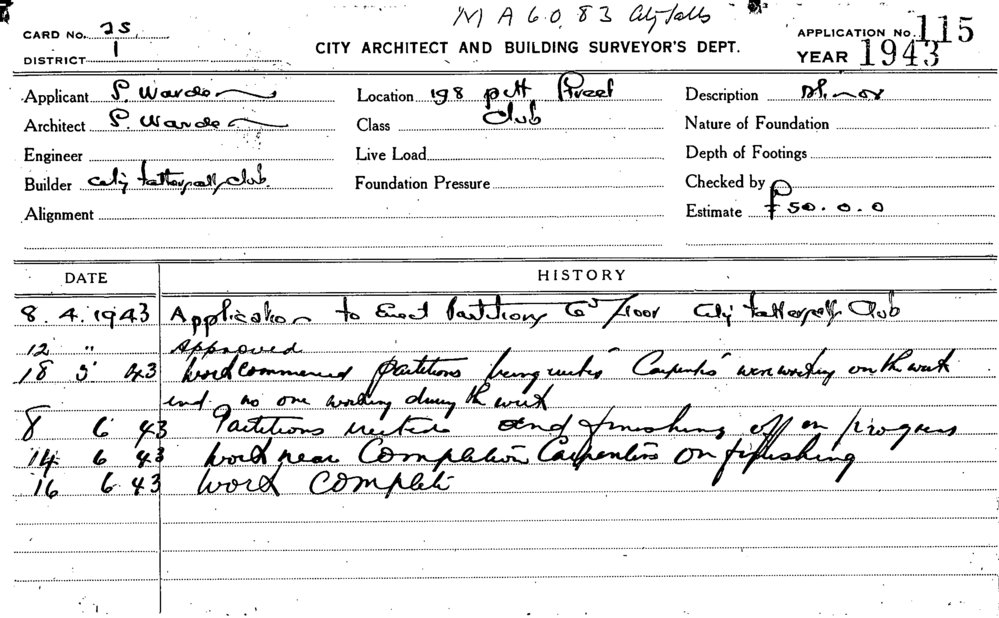 M A 60 83 City Tatts
CARD No. 25
APPLICATION No. 115
DISTRICT 1
CITY ARCHITECT AND BUILDING SURVEYOR'S DEPT.
YEAR 1943
Applicant S. Warde
Location 198 pitt Street
Description
Architect S. Warde
Class Club
Nature of Foundation
Engineer
Live Load
Depth of Footings
Builder City tattersalls club.
Foundation Pressure
Checked by
Alignment
Estimate £50.0.0
DATE
HISTORY
8. 4. 1943 Application to Erect Partitions Floor City Tattersalls Club
12 " Approved
18 5 43 Work commenced partitions being erected Carpenters were working on the week
end no one working during the week
8 6 43 Partitions erected and finishing off in progress
14 6 43 Work near Completion Carpenters on finishing
16 6 43 Work Complete